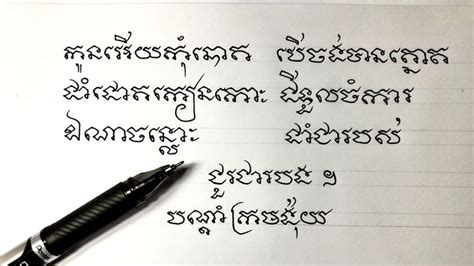 កូនអើយកុំឆោត បើចង់មានត្នោត
ដាំដោតកៀនកោះ ដីទួលចំការ
ឯណាចន្លោះ ដាំជារបស់
ជួរជារបង ។
បណ្ដាំក្រមង៉ុយ